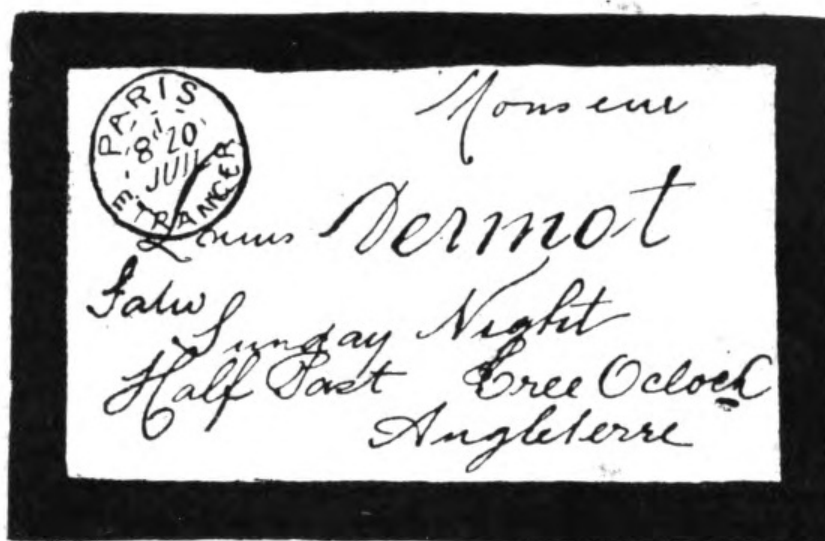 PARIS
8 20
JUIL
ETRANGER
Monseur
Dermot
Sunday Night
Half Past Eree Oclock
Angleterre